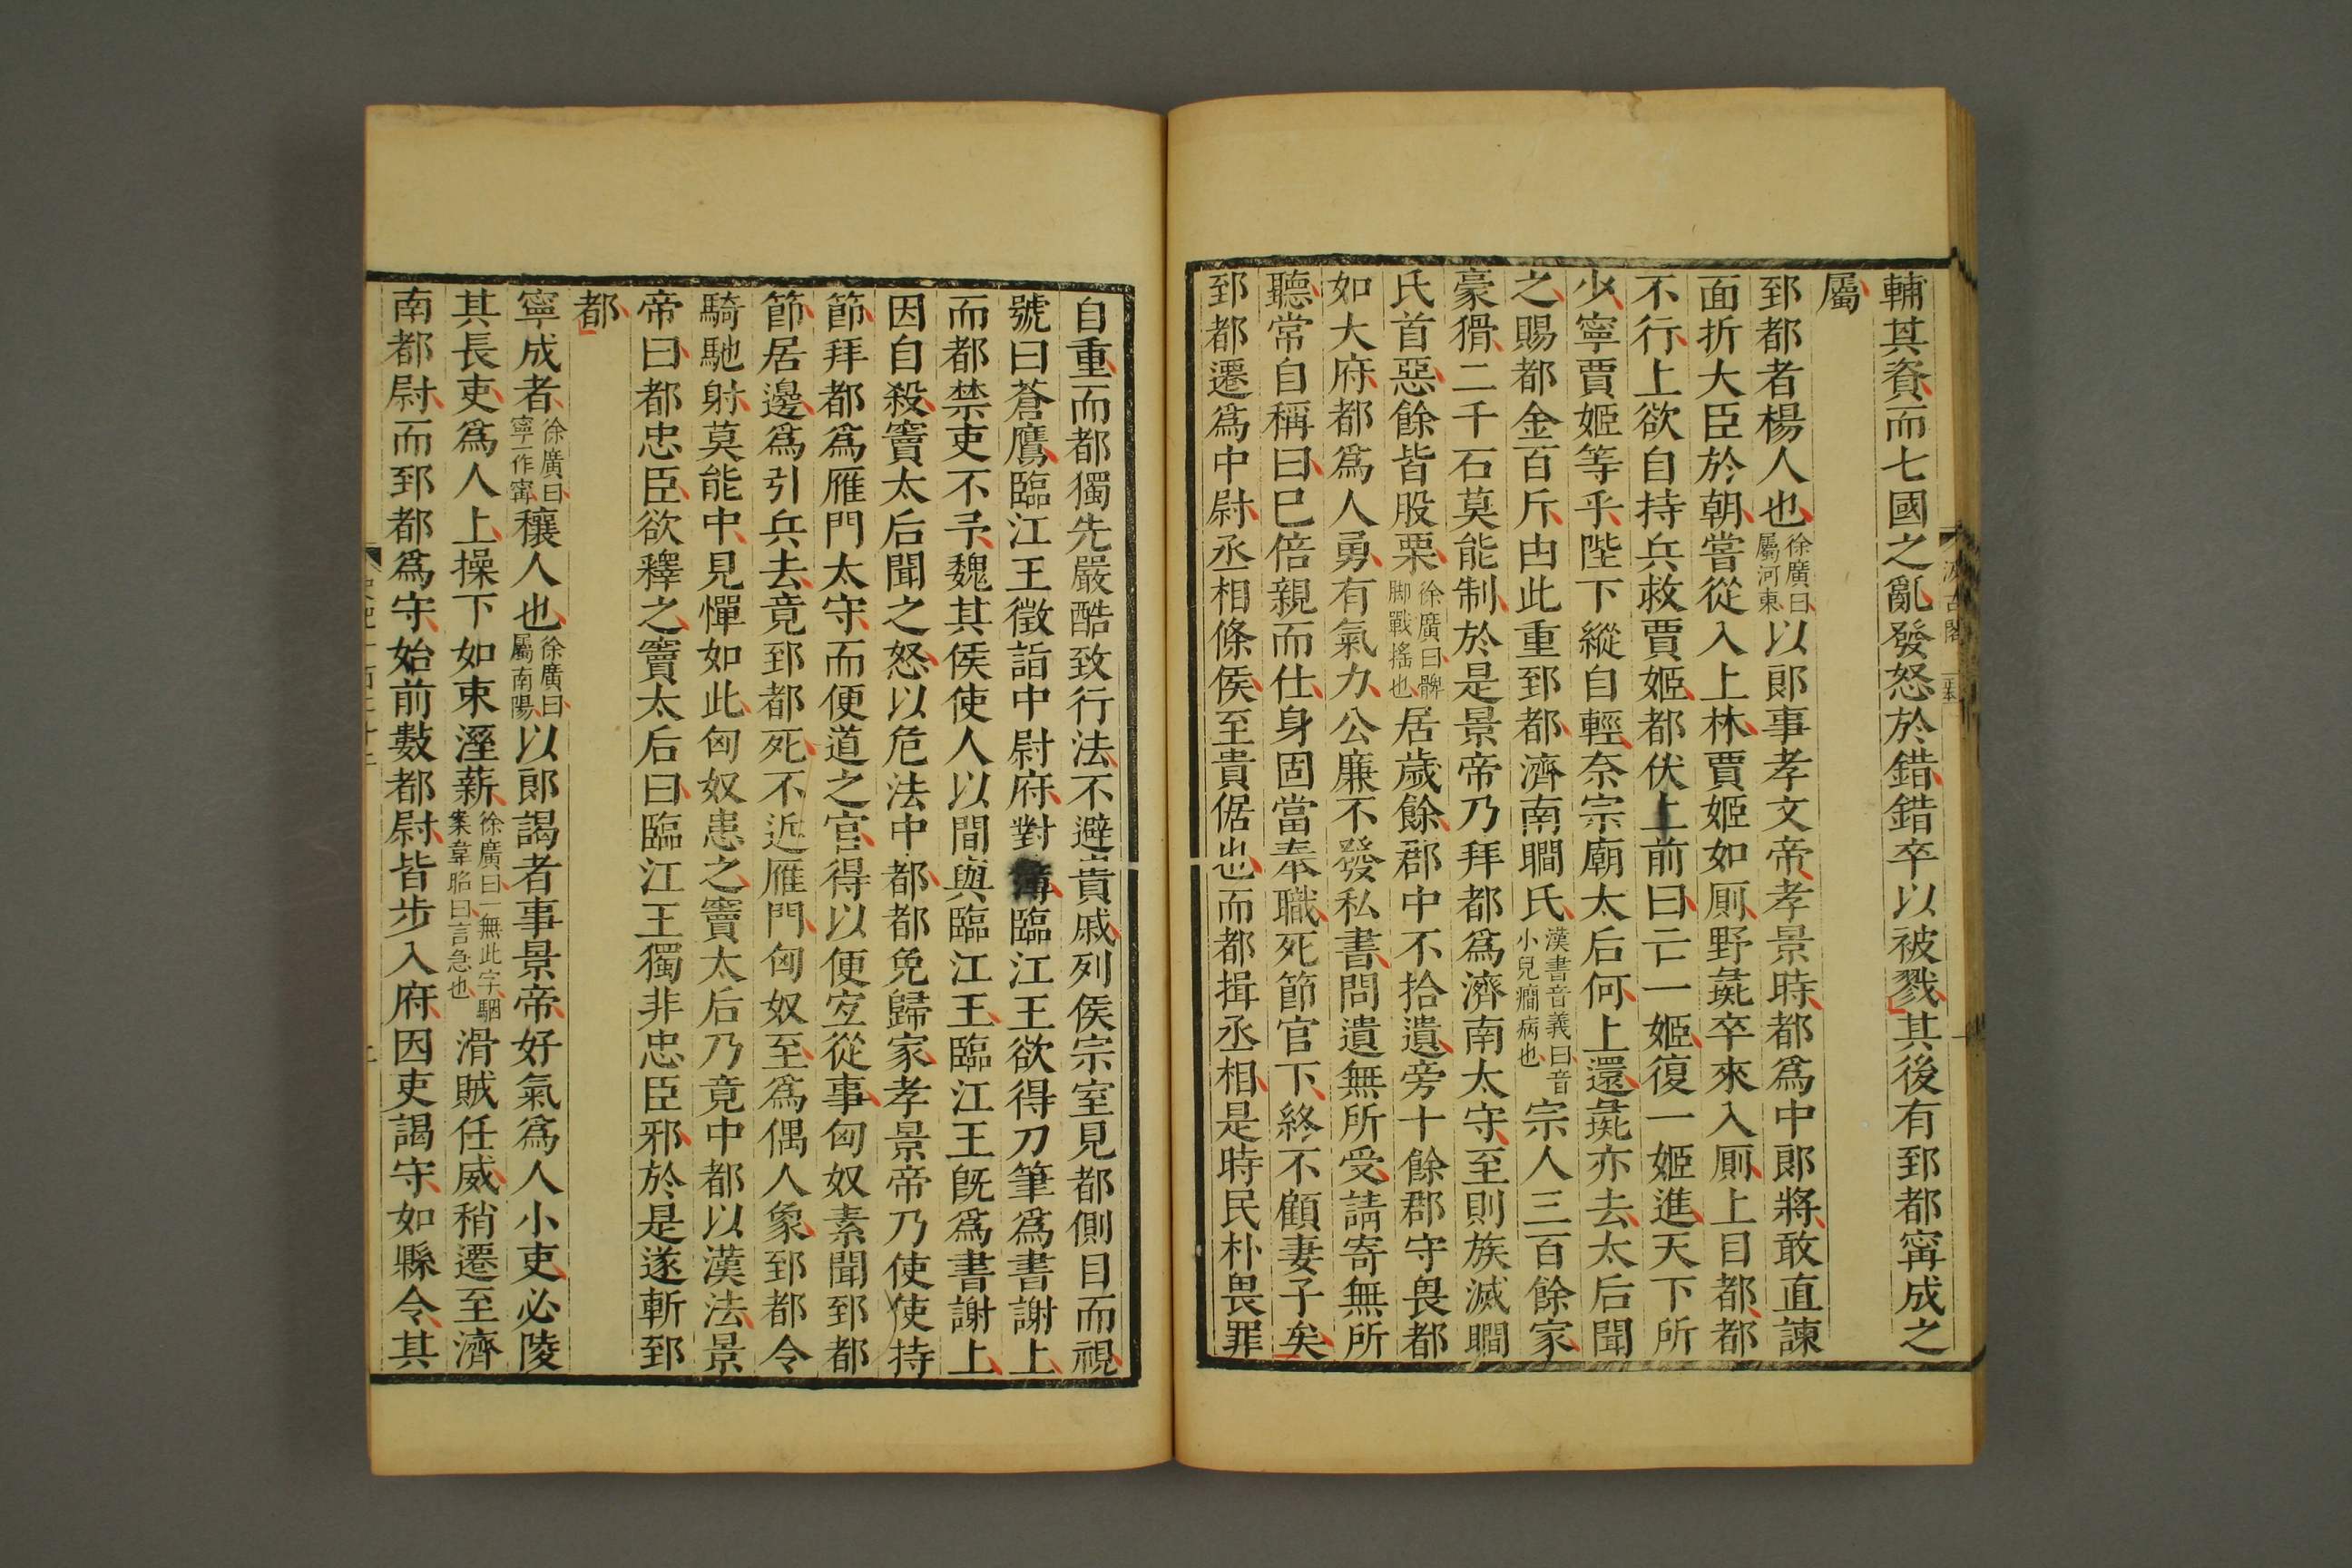 輔其資而七國之亂發怒於錯錯卒以被戮其後有郅都甯成之
屬
郅都者楊人也徐廣曰屬河東以郎事孝文帝孝景時都爲中郎將敢直諫
面折大臣於朝嘗從入上林賈姬如厠野彘卒來入厠上目都都
不行上欲自持兵救賈姬都伏上前曰亡一姬復一姬進天下所
少寧賈姬等乎陛下縱自輕奈宗廟太后何上還彘亦去太后聞
之賜都金百斤由此重郅都濟南瞯氏漢書音義曰音小兒癇病也宗人三百餘家
豪猾二千石莫能制於是景帝乃拜都爲濟南太守至則族滅瞯
氏首惡餘皆股栗徐廣曰髀脚戰搖也居歲餘郡中不拾遺旁十餘郡守畏都
如大府都爲人勇有氣力公廉不發私書問遺無所受請寄無所
聽常自稱曰已倍親而仕身固當奉職死節官下終不顧妻子矣
郅都遷爲中尉丞相條侯至貴倨也而都揖丞相是時民朴畏罪
自重而都獨先嚴酷致行法不避貴戚列侯宗室見都側目而視
號曰蒼鷹臨江王徵詣中尉府對簿臨江王欲得刀筆爲書謝上
而都禁吏不予魏其侯使人以間與臨江王臨江王旣爲書謝上
因自殺竇太后聞之怒以危法中都都免歸家孝景帝乃使使持
節拜都爲雁門太守而便道之官得以便宜從事匈奴素聞郅都
節居邊爲引兵去竟郅都死不近雁門匈奴至爲偶人象郅都令
騎馳射莫能中見憚如此匈奴患之竇太后乃竟中都以漢法景
帝曰都忠臣欲釋之竇太后曰臨江王獨非忠臣邪於是遂斬郅
都
寧成者徐廣曰寧一作甯穰人也徐廣曰屬南陽以郎謁者事景帝好氣爲人小吏必陵
其長吏爲人上操下如束溼薪徐廣曰一無此字駰案韋昭曰言急也滑賊任威稍遷至濟
南都尉而郅都爲守始前數都尉皆步入府因吏謁守如縣令其